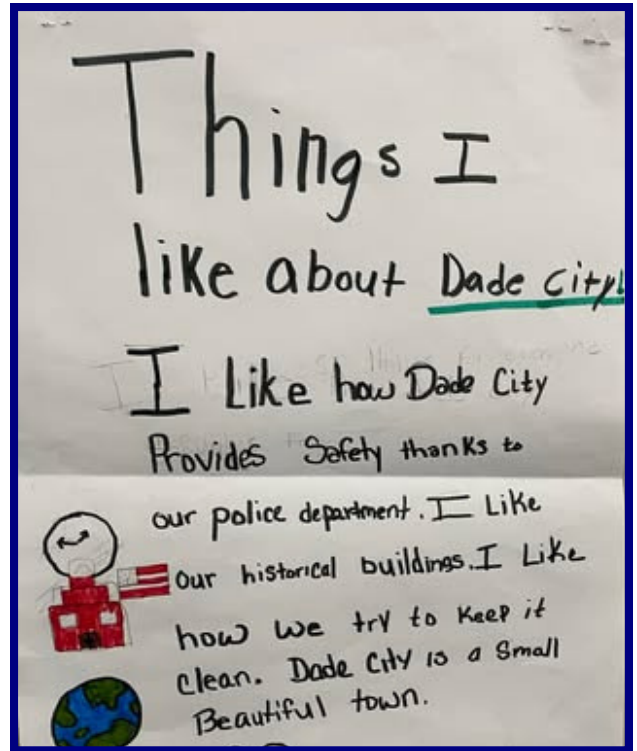 Things I
like about Dade City!
I Like how Dade City
Provides Safety thanks to
our police department. I Like
our historical buildings. I Like
how we try to keep it
clean. Dade City is a Small
Beautiful town.